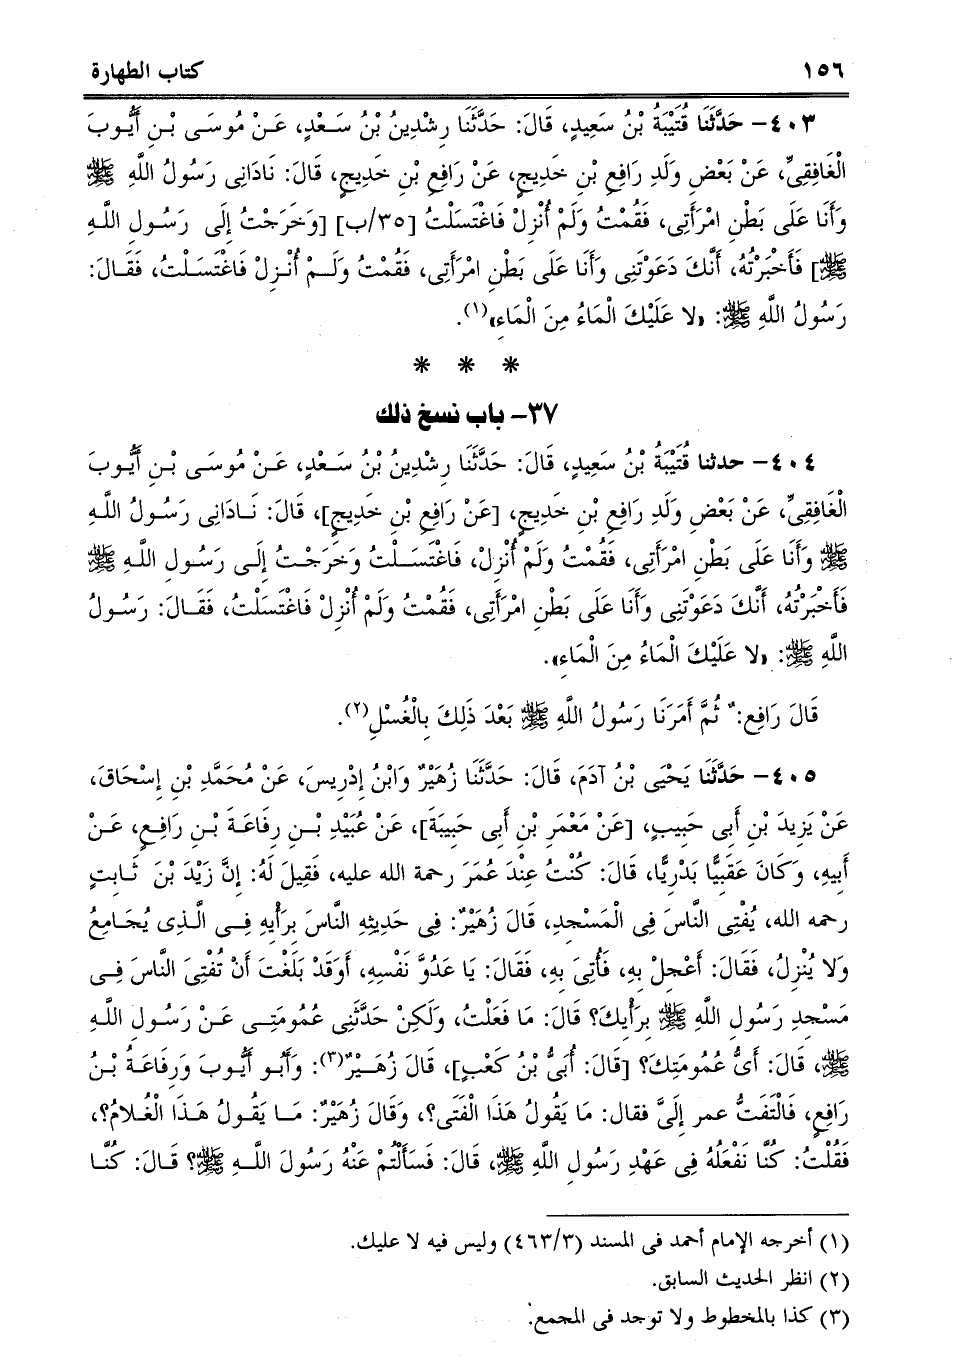 ١٥٦ كتاب الطهارة
٤٠٣- حَدَّثَنَا قُتَيْبَةُ بْنُ سَعِيدٍ، قَالَ: حَدَّثَنَا رِشْدِينُ بْنُ سَعْدٍ، عَنْ مُوسَى بْنِ أَيُّوبَ
الْغَافِقِيِّ، عَنْ بَعْضِ وَلَدِ رَافِعِ بْنِ خَدِيجٍ، عَنْ رَافِعِ بْنِ خَدِيجٍ، قَالَ: نَادَانِى رَسُولُ اللَّهِ ﷺ
وَأَنَا عَلَى بَطْنِ امْرَأَتِى، فَقُمْتُ وَلَمْ أُنْزِلْ فَاغْتَسَلْتُ [٣٥/ب] [وَخَرَجْتُ إِلَى رَسُولِ اللَّهِ
ﷺ] فَأَخْبَرْتُهُ، أَنَّكَ دَعَوْتَنِى وَأَنَا عَلَى بَطْنِ امْرَأَتِى، فَقُمْتُ وَلَمْ أُنْزِلْ فَاغْتَسَلْتُ، فَقَالَ:
رَسُولُ اللَّهِ ﷺ: «لا عَلَيْكَ الْمَاءُ مِنَ الْمَاءِ»(١).
* * *
٣٧- باب نسخ ذلك
٤٠٤- حدثنا قُتَيْبَةُ بْنُ سَعِيدٍ، قَالَ: حَدَّثَنَا رِشْدِينُ بْنُ سَعْدٍ، عَنْ مُوسَى بْنِ أَيُّوبَ
الْغَافِقِيِّ، عَنْ بَعْضِ وَلَدِ رَافِعِ بْنِ خَدِيجٍ، [عَنْ رَافِعِ بْنِ خَدِيجٍ]، قَالَ: نَادَانِى رَسُولُ اللَّهِ
ﷺ وَأَنَا عَلَى بَطْنِ امْرَأَتِى، فَقُمْتُ وَلَمْ أُنْزِلْ، فَاغْتَسَلْتُ وَخَرَجْتُ إِلَى رَسُولِ اللَّهِ ﷺ
فَأَخْبَرْتُهُ، أَنَّكَ دَعَوْتَنِى وَأَنَا عَلَى بَطْنِ امْرَأَتِى، فَقُمْتُ وَلَمْ أُنْزِلْ فَاغْتَسَلْتُ، فَقَالَ: رَسُولُ
اللَّهِ ﷺ: «لا عَلَيْكَ الْمَاءُ مِنَ الْمَاءِ».
قَالَ رَافِعٍ: ثُمَّ أَمَرَنَا رَسُولُ اللَّهِ ﷺ بَعْدَ ذَلِكَ بِالْغُسْلِ(٢).
٤٠٥- حَدَّثَنَا يَحْيَى بْنُ آدَمَ، قَالَ: حَدَّثَنَا زُهَيْرٌ وَابْنُ إِدْرِيسَ، عَنْ مُحَمَّدِ بْنِ إِسْحَاقَ،
عَنْ يَزِيدَ بْنِ أَبِى حَبِيبٍ، [عَنْ مَعْمَرِ بْنِ أَبِى حَبِيبَةَ]، عَنْ عُبَيْدِ بْنِ رِفَاعَةَ بْنِ رَافِعٍ، عَنْ
أَبِيهِ، وَكَانَ عَقَبِيًّا بَدْرِيًّا، قَالَ: كُنْتُ عِنْدَ عُمَرَ رحمة الله عليه، فَقِيلَ لَهُ: إِنَّ زَيْدَ بْنَ ثَابِتٍ
رحمه الله، يُفْتِى النَّاسَ فِى الْمَسْجِدِ، قَالَ زُهَيْرٌ: فِى حَدِيثِهِ النَّاسَ بِرَأْيِهِ فِى الَّذِى يُجَامِعُ
وَلا يُنْزِلُ، فَقَالَ: أَعْجِلْ بِهِ، فَأُتِىَ بِهِ، فَقَالَ: يَا عَدُوَّ نَفْسِهِ، أَوَقَدْ بَلَغْتَ أَنْ تُفْتِىَ النَّاسَ فِى
مَسْجِدِ رَسُولِ اللَّهِ ﷺ بِرَأْيِكَ؟ قَالَ: مَا فَعَلْتُ، وَلَكِنْ حَدَّثَنِى عُمُومَتِى عَنْ رَسُولِ اللَّهِ
ﷺ، قَالَ: أَىُّ عُمُومَتِكَ؟ [قَالَ: أُبَىُّ بْنُ كَعْبٍ]، قَالَ زُهَيْرٌ(٣): وَأَبُو أَيُّوبَ وَرِفَاعَةُ بْنُ
رَافِعٍ، فَالْتَفَتُ عمر إِلَىَّ فقال: مَا يَقُولُ هَذَا الْفَتَى؟، وَقَالَ زُهَيْرٌ: مَا يَقُولُ هَذَا الْغُلامُ؟،
فَقُلْتُ: كُنَّا نَفْعَلُهُ فِى عَهْدِ رَسُولِ اللَّهِ ﷺ، قَالَ: فَسَأَلْتُمْ عَنْهُ رَسُولَ اللَّهِ ﷺ؟ قَالَ: كُنَّا
(١) أخرجه الإمام أحمد فى المسند (٤٦٣/٣) وليس فيه لا عليك.
(٢) انظر الحديث السابق.
(٣) كذا بالمخطوط ولا توجد فى المجمع.